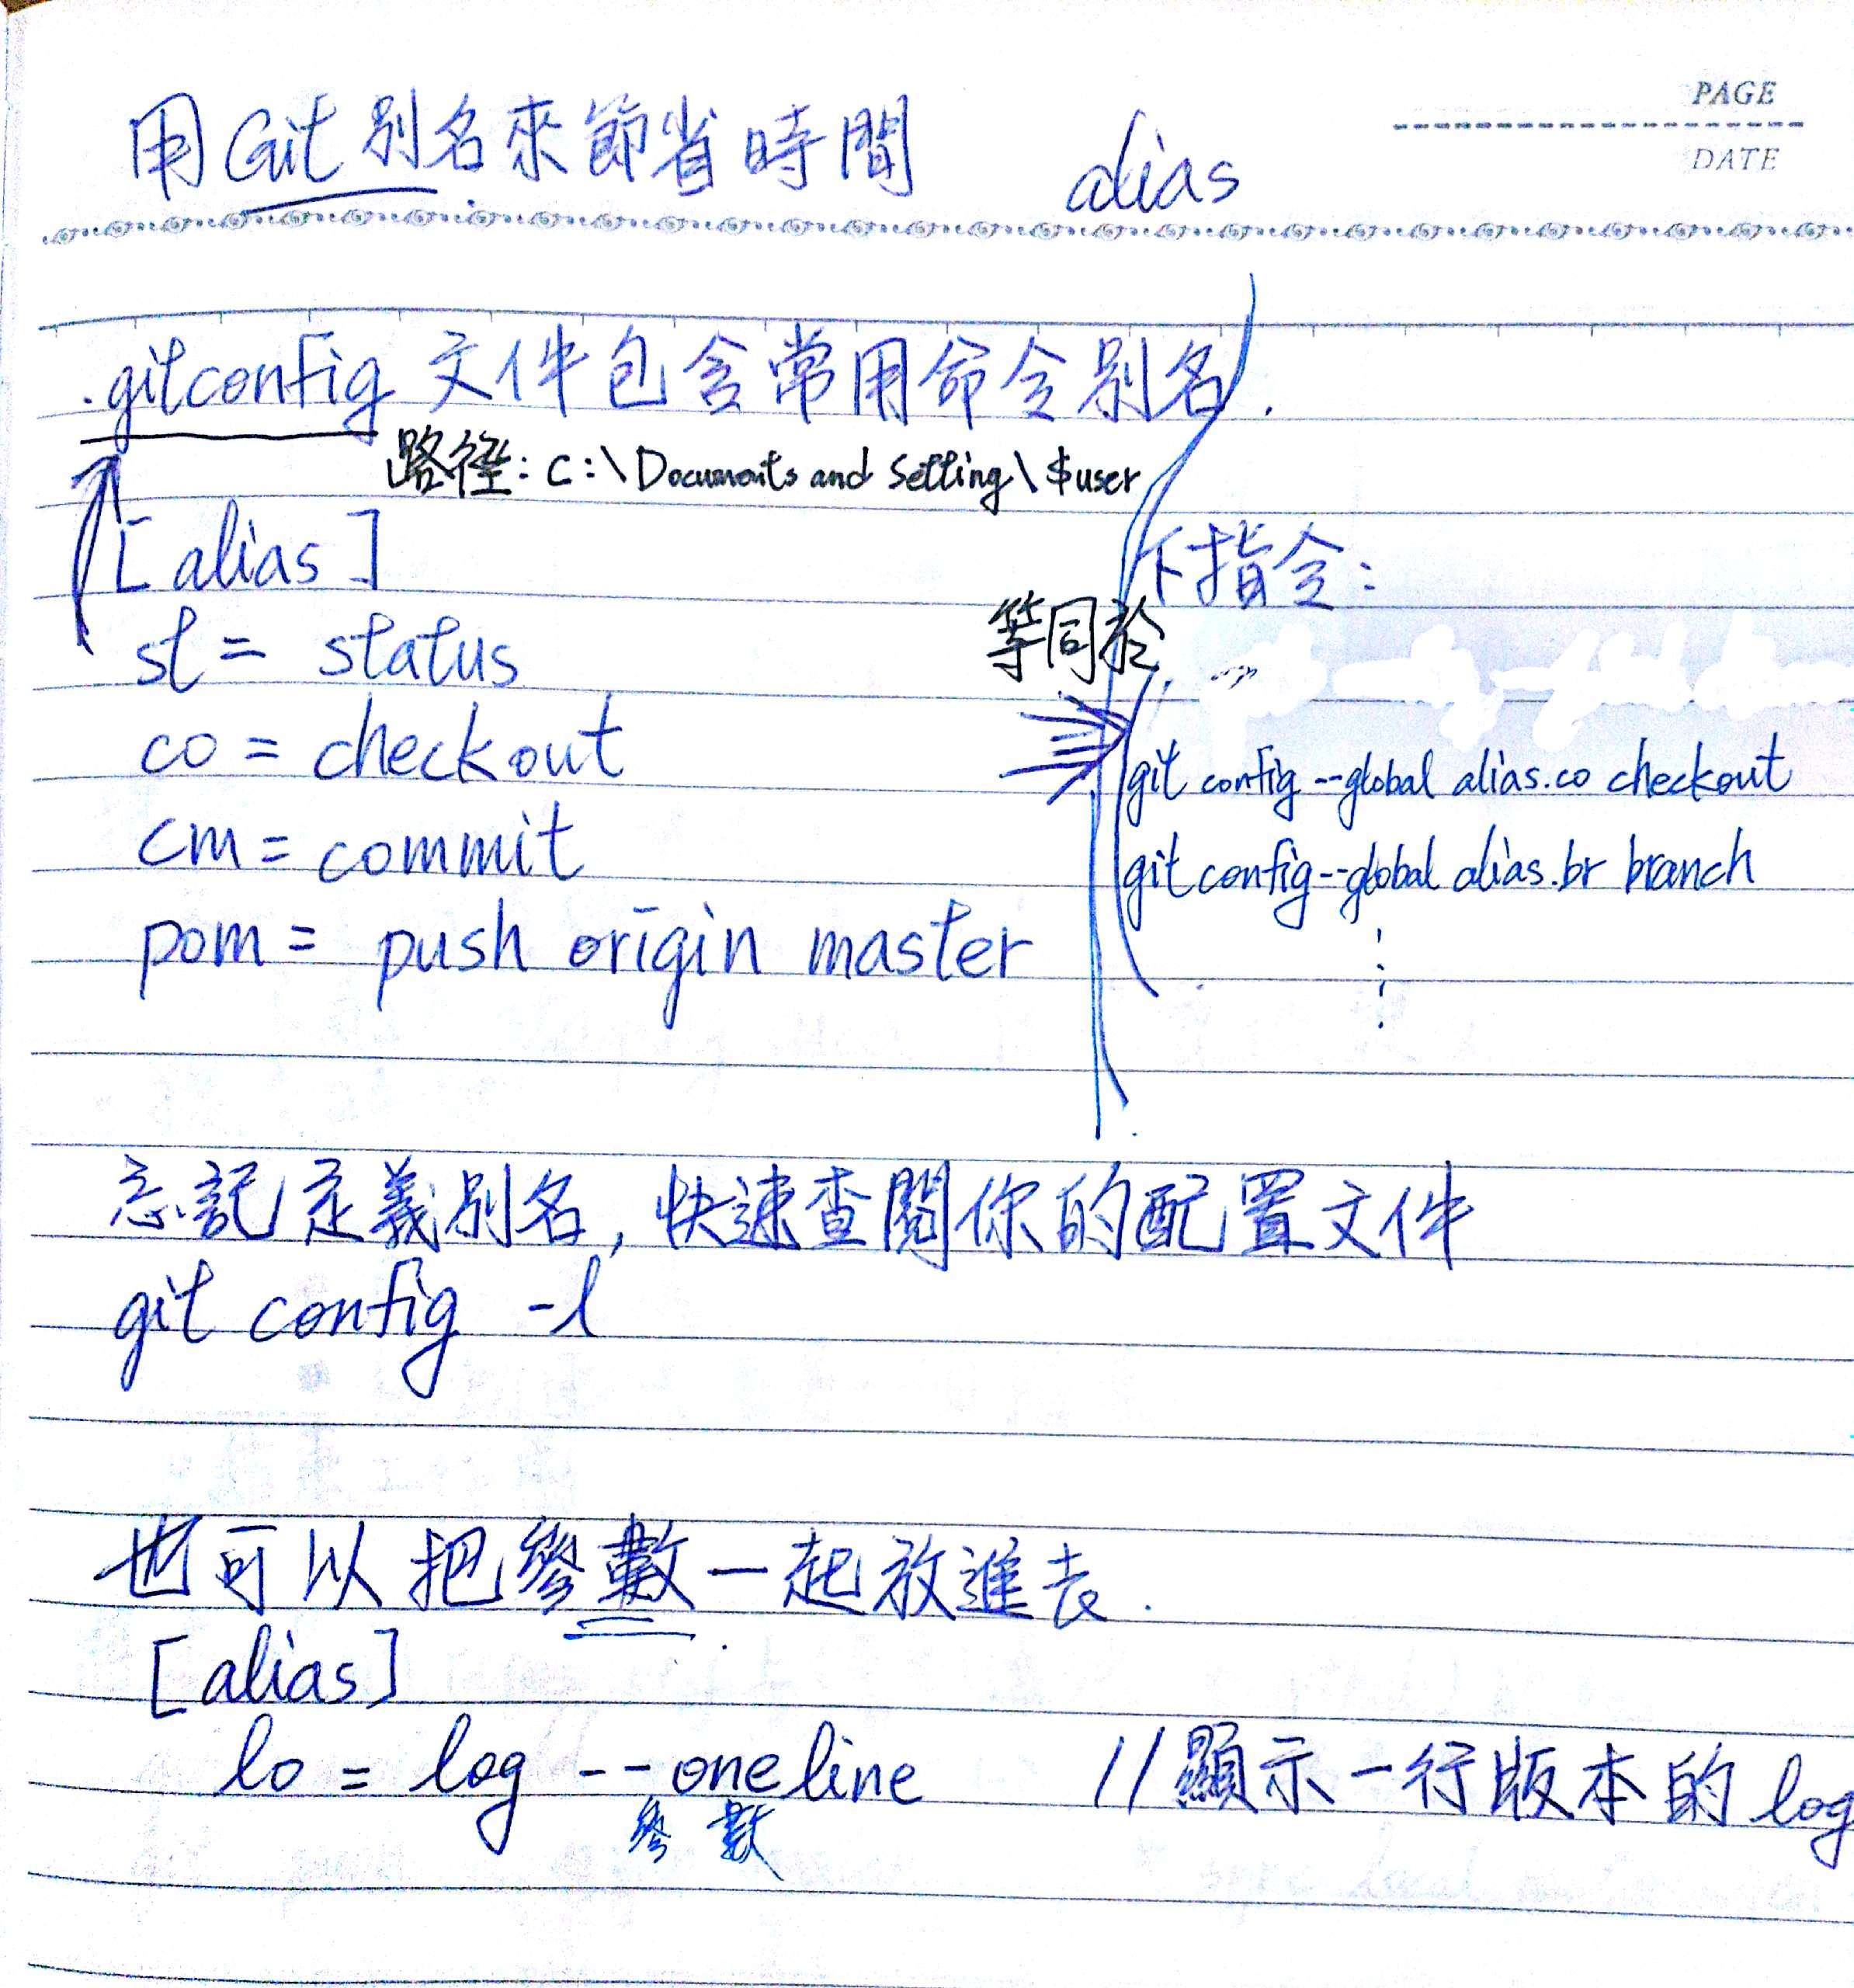 PAGE
DATE
用Git別名來節省時間 alias
.gitconfig 文件包含常用命令別名.
路徑: C:\Documents and Setting\$user
[alias]
st = status
co = checkout
cm = commit
pom = push origin master
下指令:
等同於
git config --global alias.co checkout
git config --global alias.br branch
⋮
忘記定義別名, 快速查閱你的配置文件
git config -l
也可以把參數一起放進去.
[alias]
lo = log --oneline //顯示一行版本的log
參數